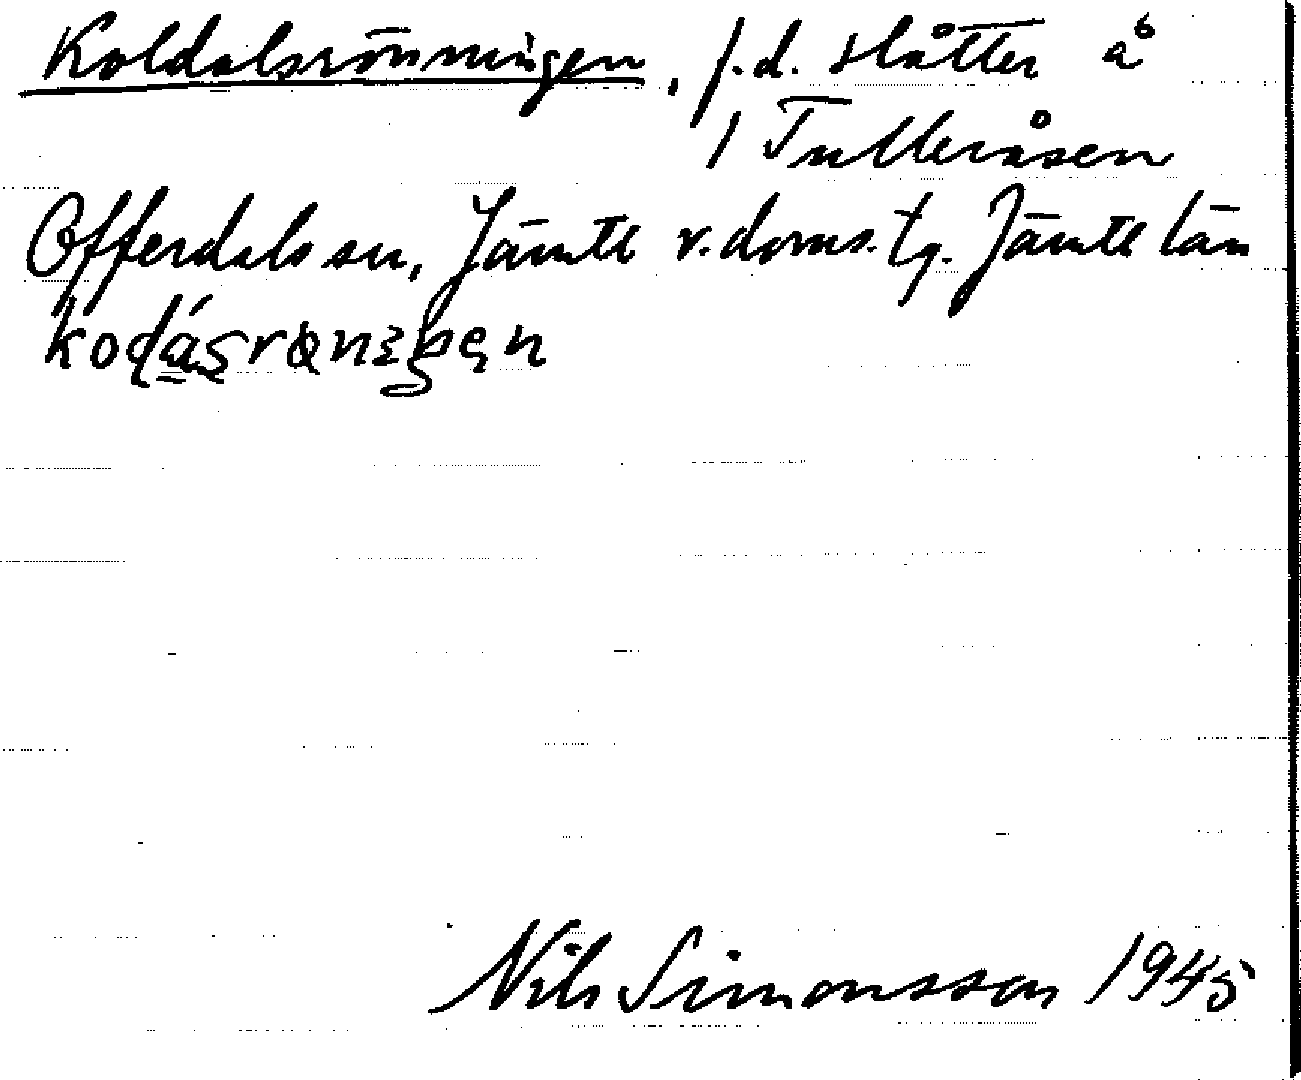 Koldalsrönningen, f.d. slåtter å
1 Tulleråsen
Offerdals sn, Jämtl v. doms. tg. Jämtl län
Nils Simonsson 1945